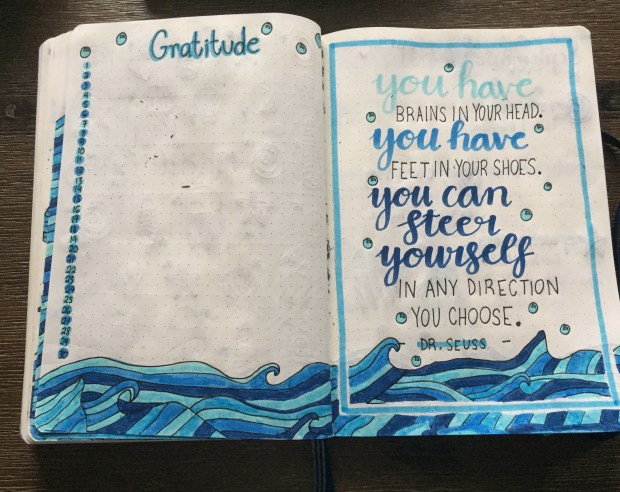 Gratitude
1
2
3
4
5
6
7
8
9
10
11
12
13
14
15
16
17
18
19
20
21
22
23
24
25
26
27
28
29
30
you have
BRAINS IN YOUR HEAD.
you have
FEET IN YOUR SHOES.
you can
steer
yourself
IN ANY DIRECTION
YOU CHOOSE.
- DR. SEUSS -